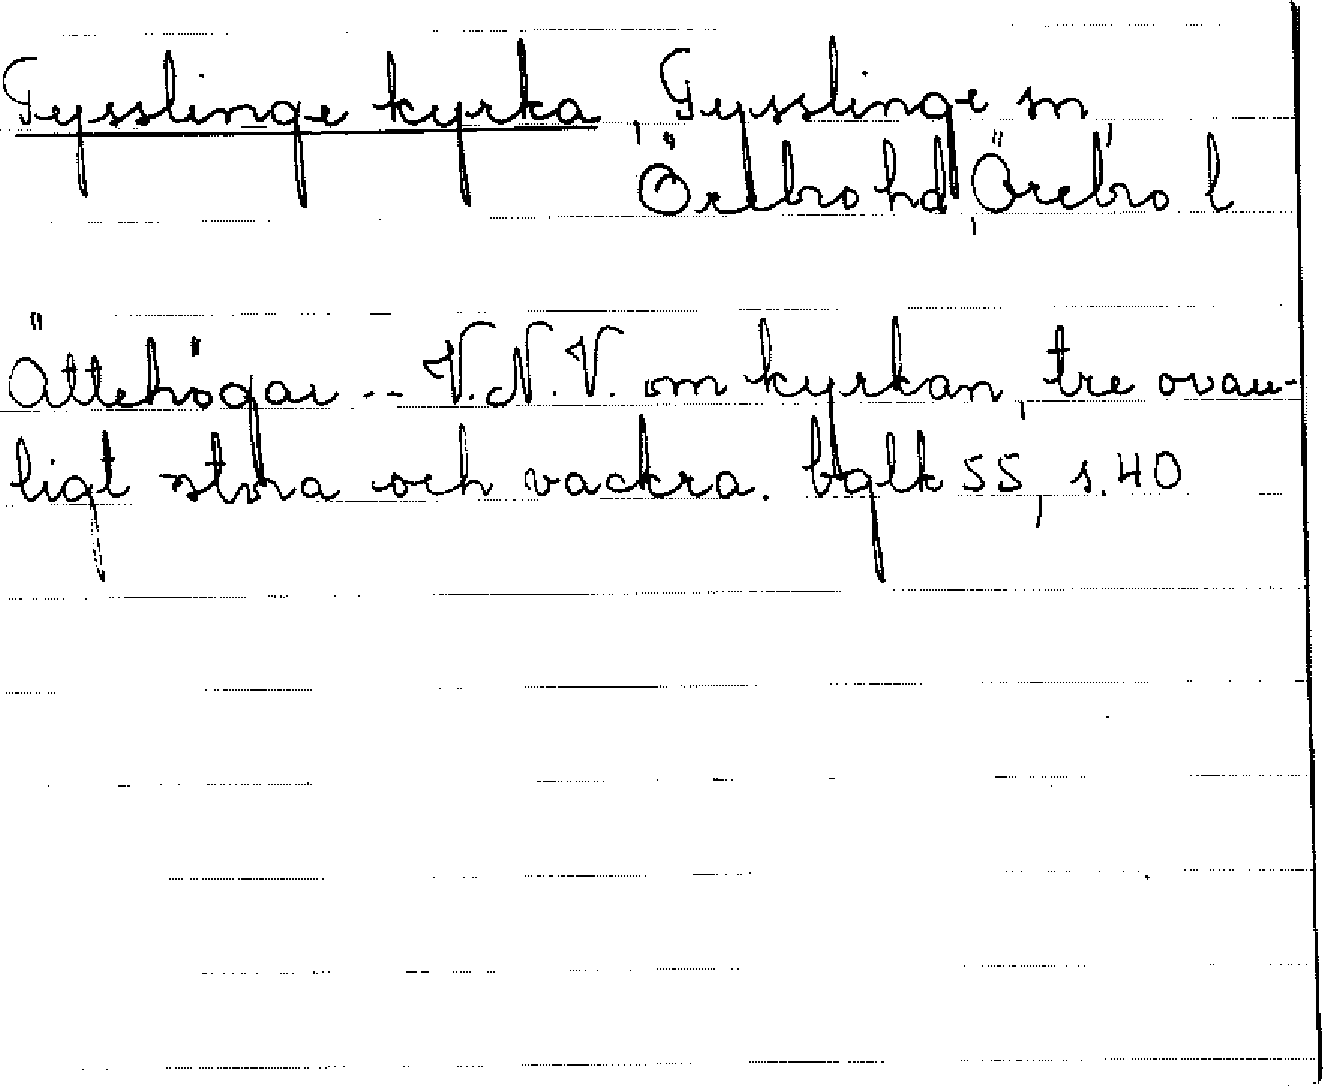 Tysslinge kyrka, Tysslinge sn,
Örebro hd, Örebro l
Ättehögar -- V.N.V. om kyrkan, tre ovan-
ligt stora och vackra. bglk 55, s. 40